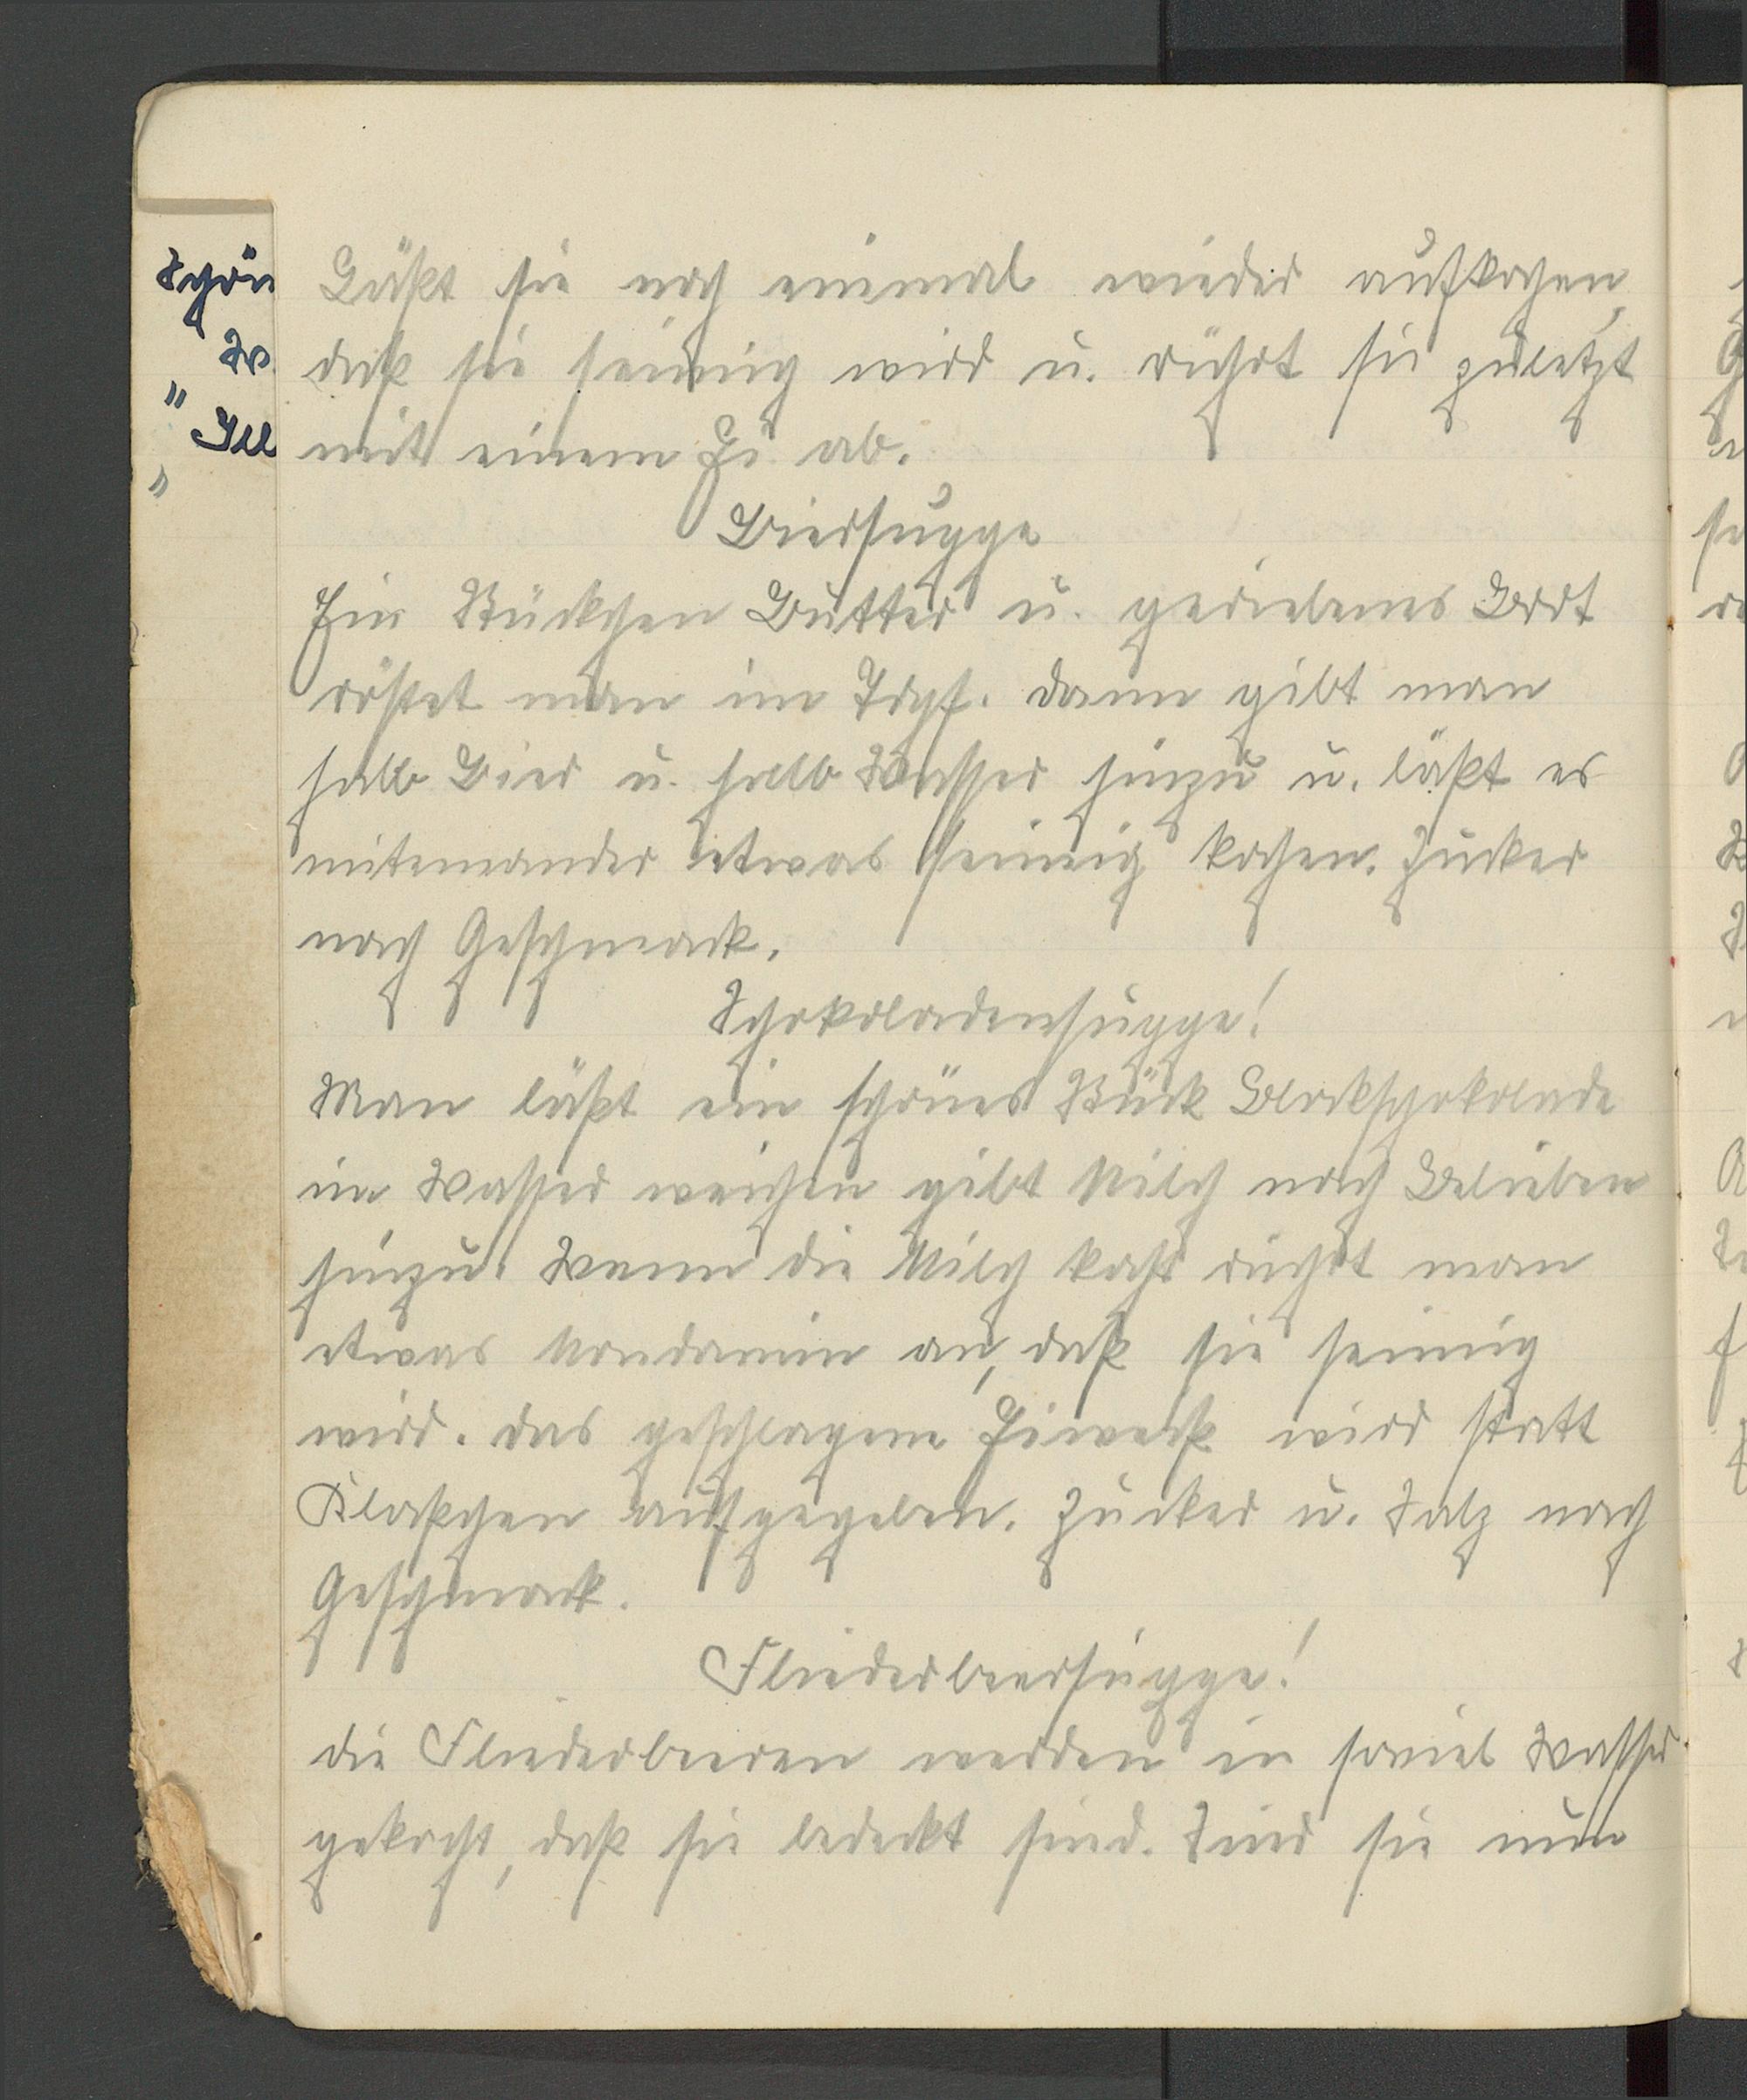 Schön
"
W.
"
Ill
Läßt sie noch einmal wieder aufkochen,
daß sie seimig wird u. rührt sie zuletzt
mit einem Ei ab.
Biersuppe
Ein Stückchen Butter u. geriebenes Brot
röstet man im Topf. Dann gibt man
halb Bier u. halb Wasser hinzu u. läßt es
miteinander etwas seimig kochen. Zucker
nach Geschmack.
Schokoladensuppe!
Man läßt ein schönes Stück Blockschokolade
in Wasser weichen gibt Milch nach Belieben
hinzu. Wenn die Milch kocht rührt man
etwas Mondamin an, daß sie seimig
wird. Das geschlagene Eiweiß wird statt
Klößchen aufgegeben. Zucker u. Salz nach
Geschmack.
Fliederbeersuppe!
Die Fliederbeeren werden in soviel Wasser
gekocht, daß sie bedeckt sind. Sind sie nun